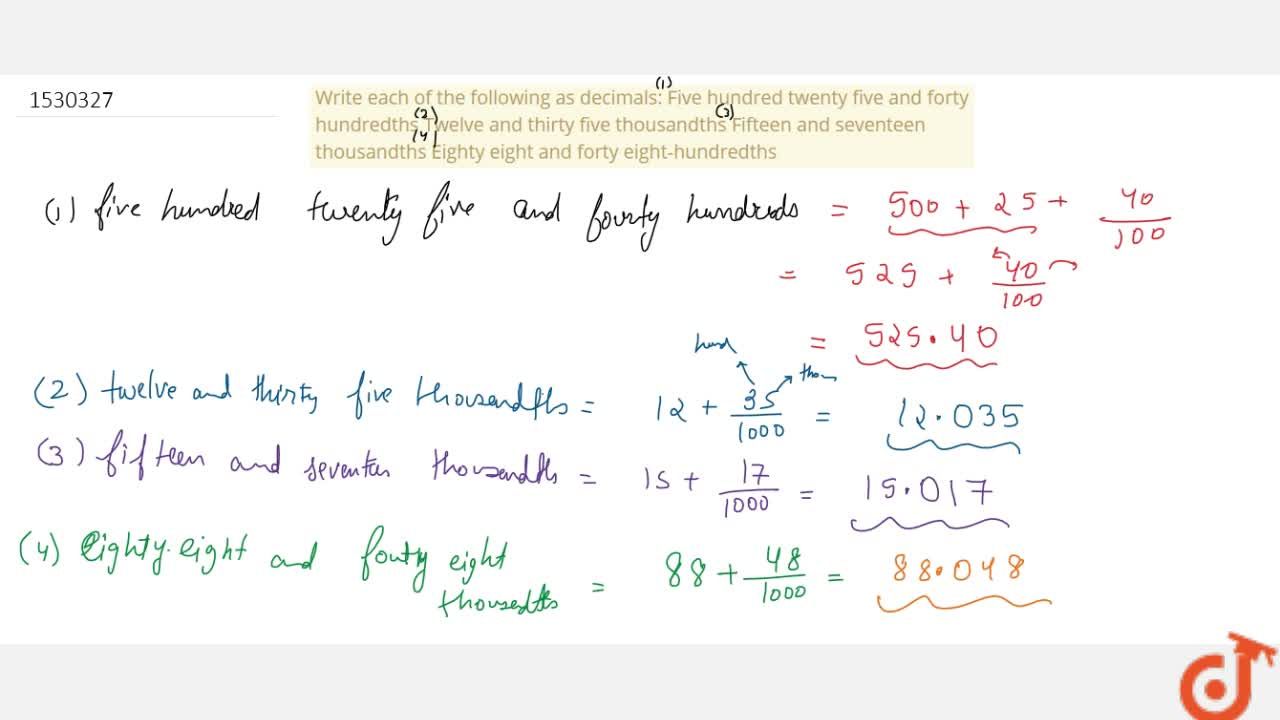 1530327
(1)
Write each of the following as decimals: Five hundred twenty five and forty
(2) (3)
hundredths Twelve and thirty five thousandths Fifteen and seventeen
(4)
thousandths Eighty eight and forty eight-hundredths
(1) five hundred twenty five and fourty hundreds = 500 + 25 + 40/100
= 525 + 40/100
= 525.40
hund thou
(2) twelve and thirty five thousandths = 12 + 35/1000 = 12.035
(3) fifteen and seventen thousandths = 15 + 17/1000 = 15.017
(4) Eighty.eight and fouty eight
thousedths = 88 + 48/1000 = 88.048